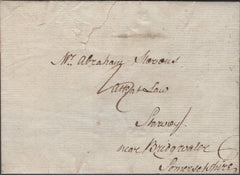 Mr. Abraham Stevens
Att[y] at Law
Stowey
near Bridgwater
Somersetshire